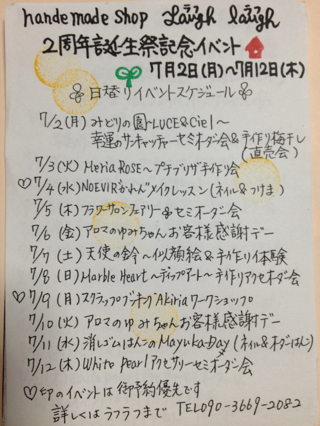 handmade shop Laugh laugh
2周年誕生祭記念イベント
7月2日(月)~7月12日(木)
日替りイベントスケジュール
7/2(月)みどりの園~LUCE&Ciel~
幸運のサンキャッチャーセミオーダー会&手作り梅干し
(直売会)
7/3(火)Meria ROSE~プチプリザ手作り会
♡7/4(水)NOEVIRかわんメイクレッスン(ネイル&つけま)
7/5(木)フラワーサロンフェアリー&セミオーダー会
7/6(金)アロマのゆみちゃんお客様感謝デー
7/7(土)天使の鈴~似顔絵&手作り体験
7/8(日)Marble Heart~ディップアート~手作りアクセオーダー会
♡7/9(月)スクラップブッキングAkiriaワークショップ
7/10(火)アロマのゆみちゃんお客様感謝デー
7/11(水)消しゴムはんこのMayuka-Day(ネイル&オーダーはんこ)
7/12(木)White Pearlアクセサリーセミオーダー会
♡印のイベントは御予約優先です
詳しくはラフラフまで TEL090-3669-2082